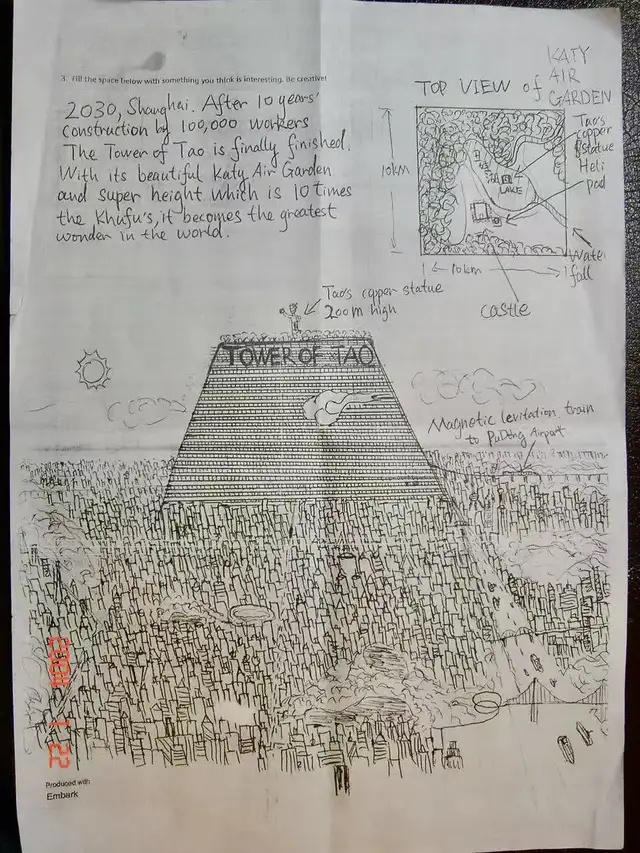 3. Fill the space below with something you think is interesting. Be creative!
2030, Shanghai. After 10 years'
construction by 100,000 workers
The Tower of Tao is finally finished.
With its beautiful Katy Air Garden
and super height which is 10 times
the Khufu's, it becomes the greatest
wonder in the world.
TOP VIEW of
KATY
AIR
GARDEN
10km
LAKE
Tao's
copper
statue
Heli
pod
Water
fall
10km
castle
Tao's copper statue
200m high
TOWER OF TAO
Magnetic levitation train
to PuDong Airport
Produced with
Embark